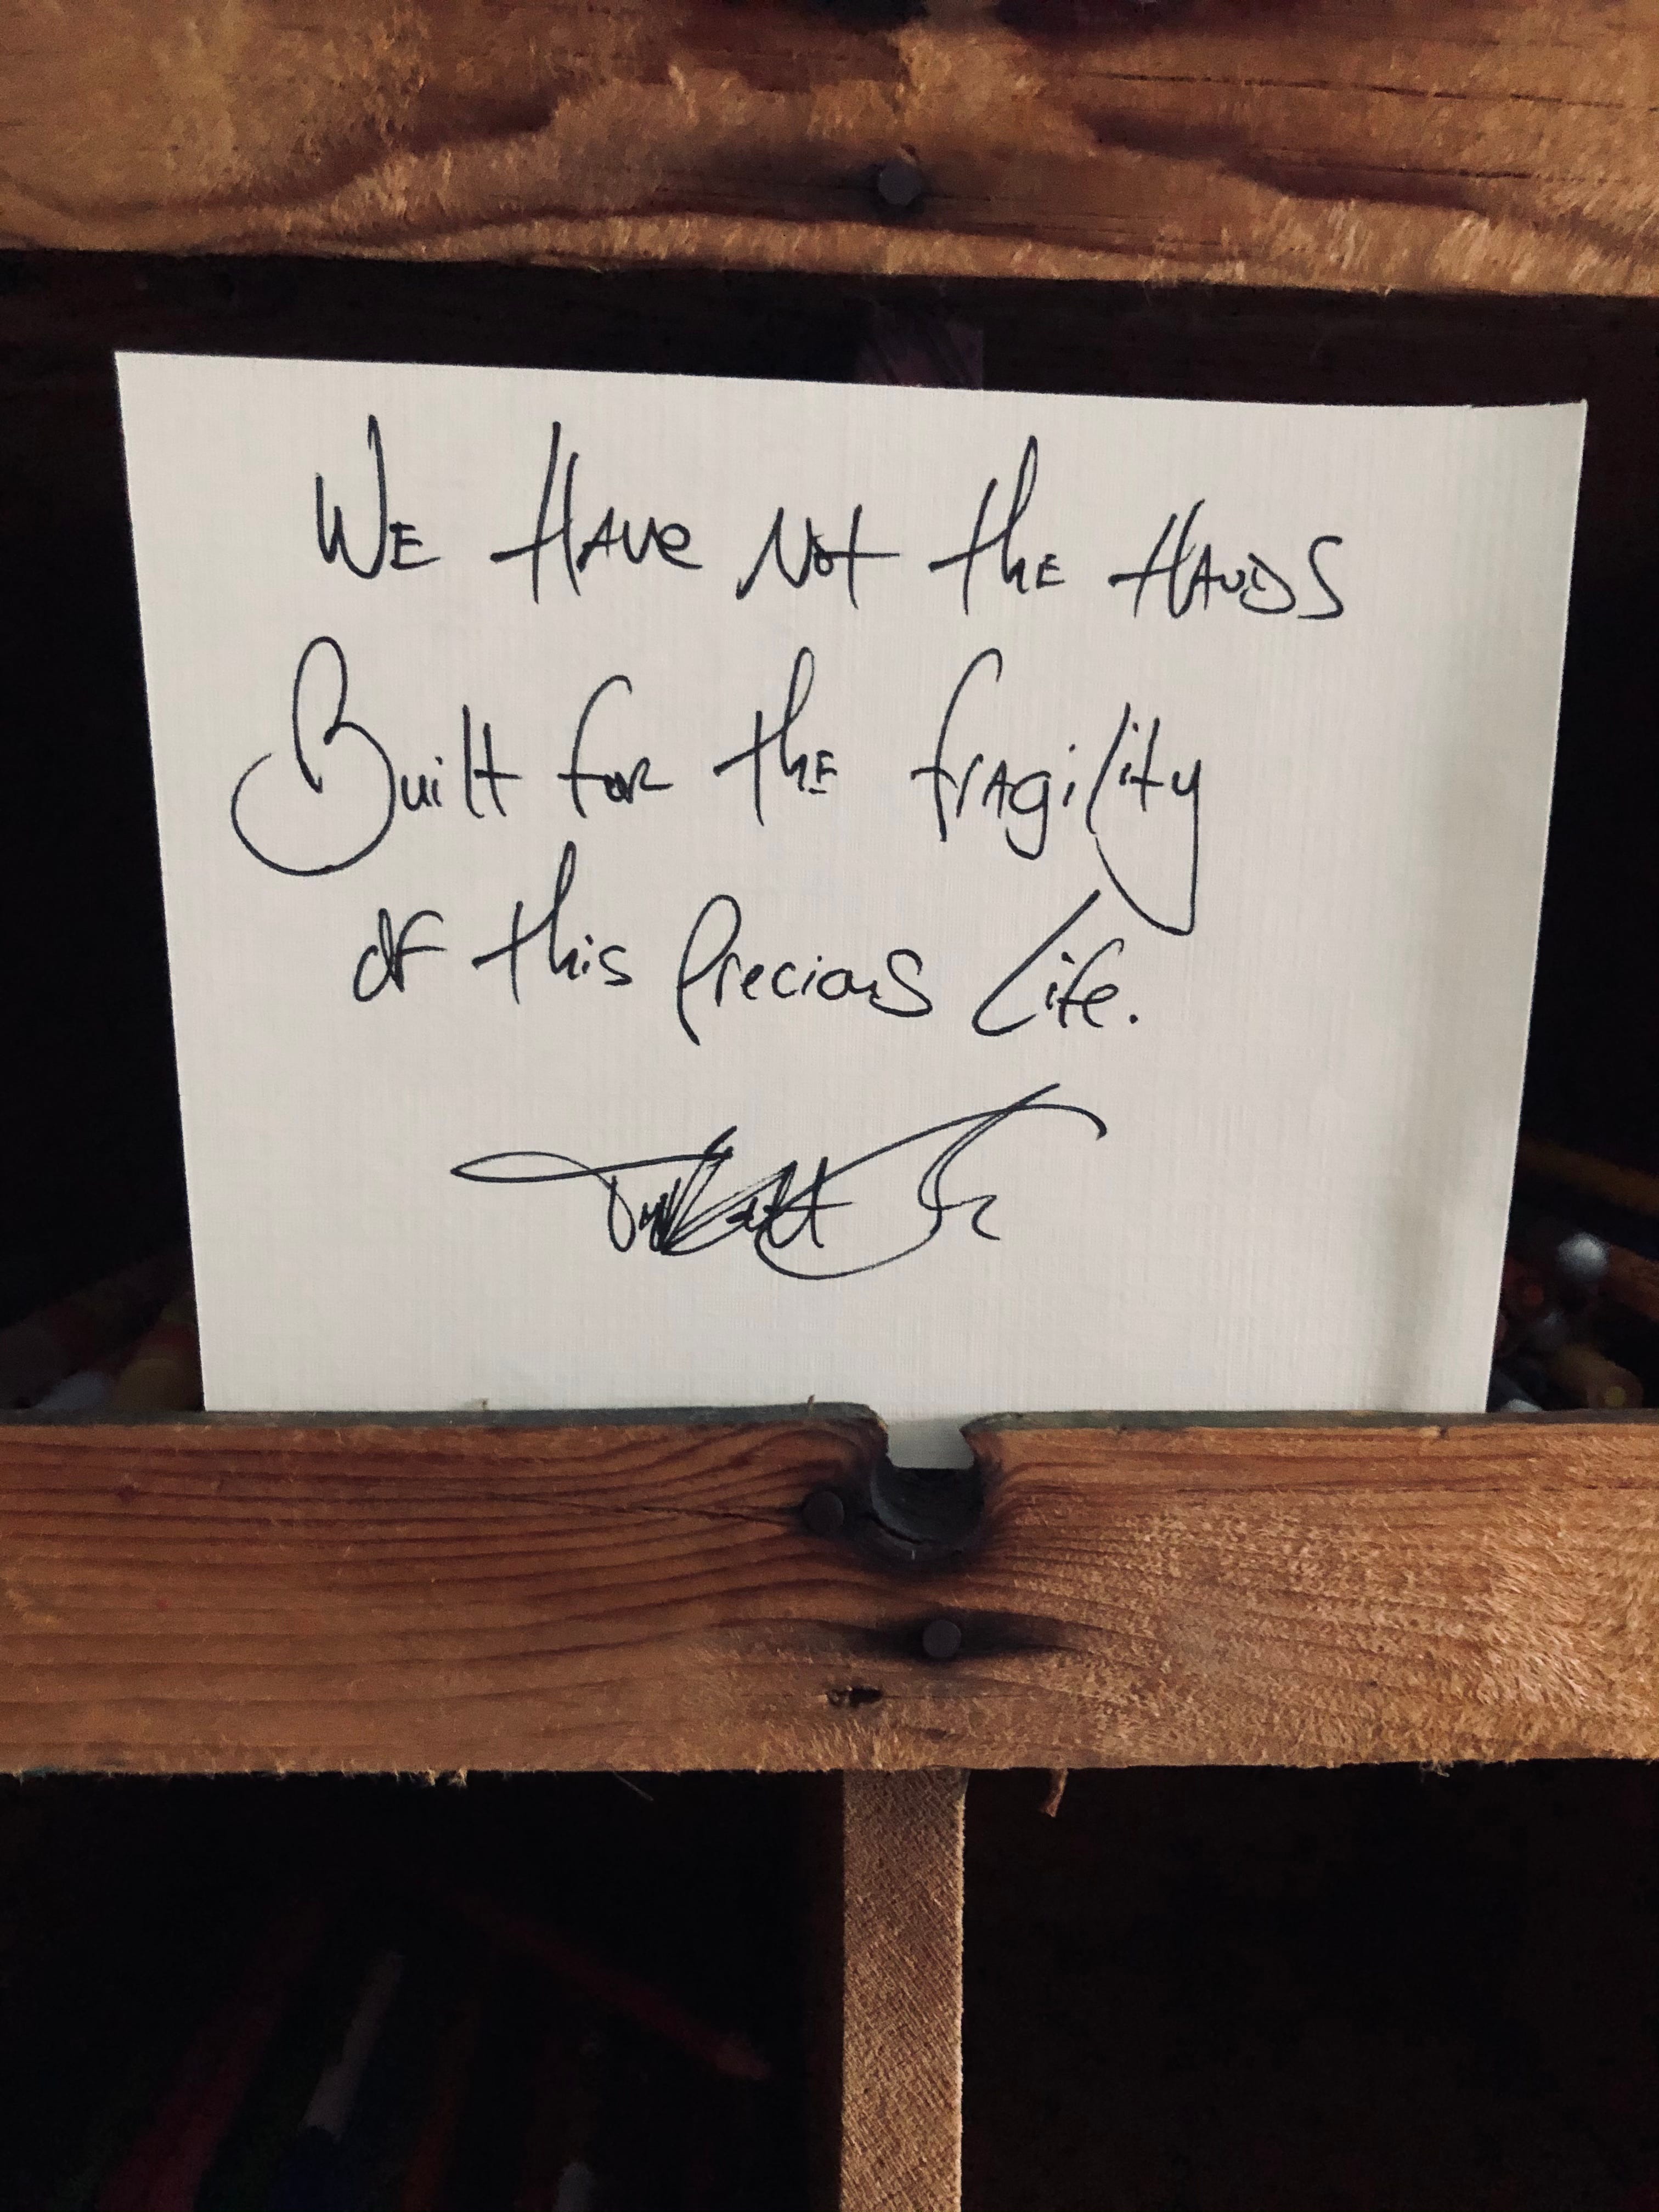 We Have Not the Hands
Built for the fragility
of this Precious Life.